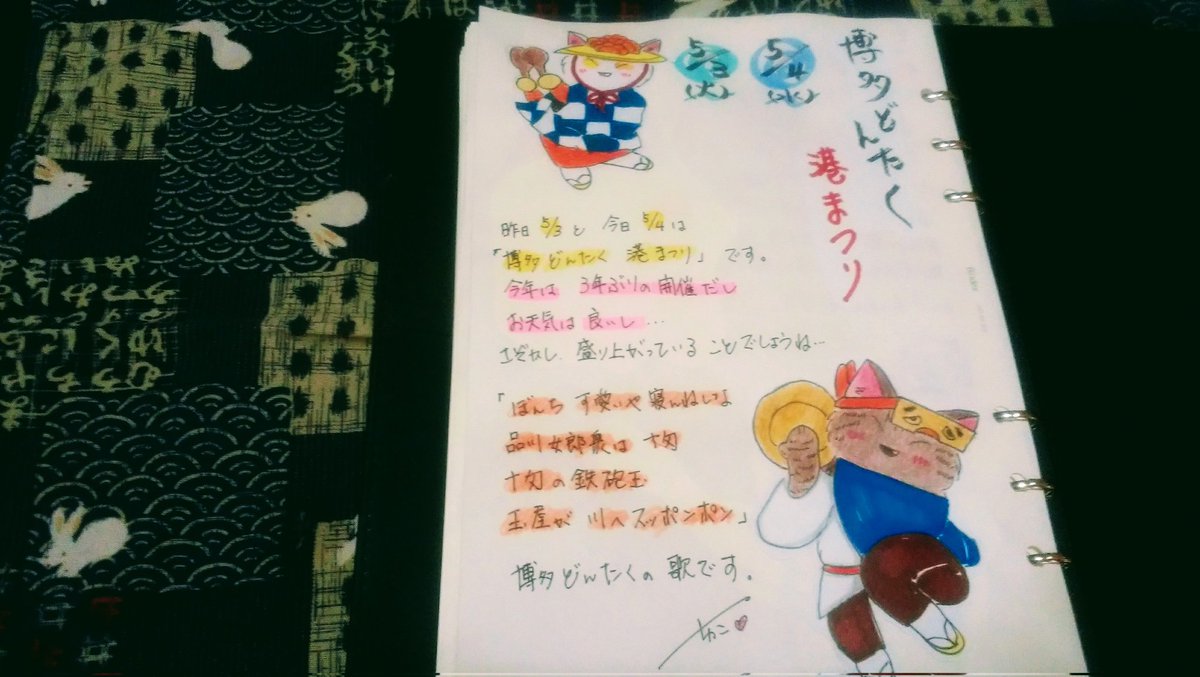 博多どんたく
港まつり
5/3
(火)
5/4
(水)
昨日 5/3 と 今日 5/4 は
「博多どんたく 港まつり」です。
今年は 3年ぶりの開催だし
お天気は良いし…
さぞかし、盛り上がっていることでしょうね…
「ぼんち 可愛いや 寝んねしなよ
品川女郎衆は 十匁
十匁の鉄砲玉
玉屋が 川へスッポンポン」
博多どんたくの歌です。